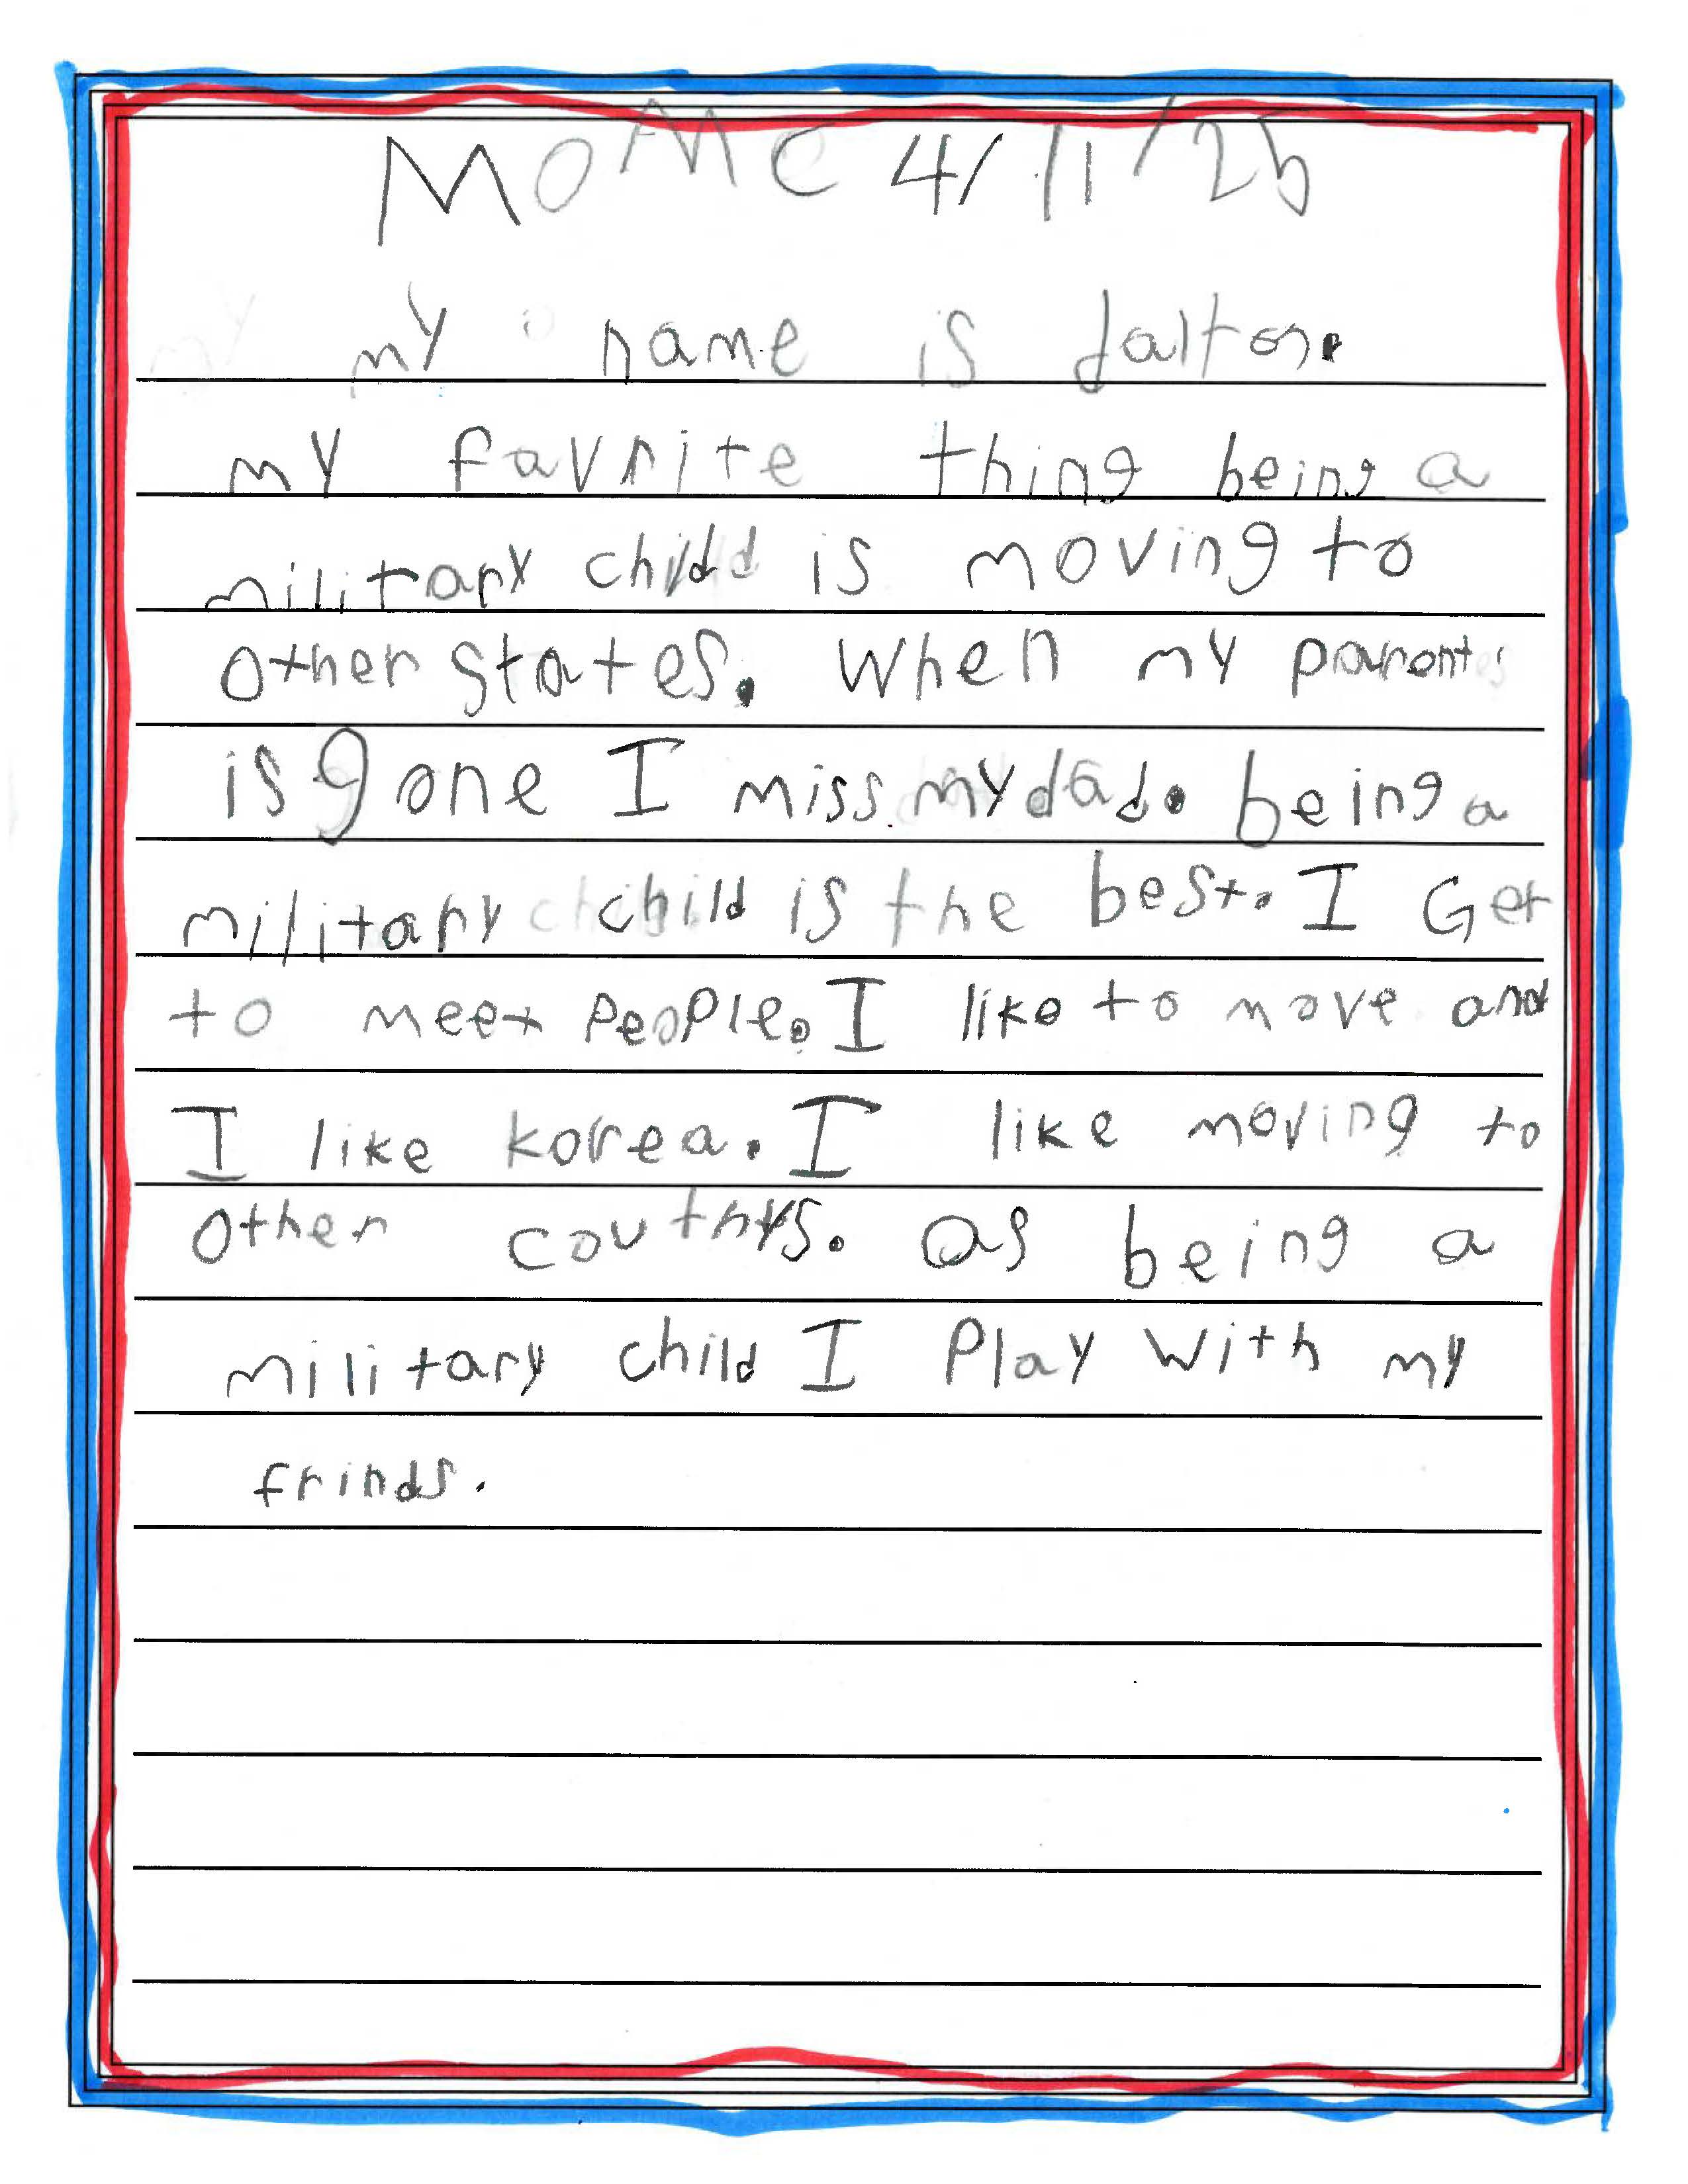 MOMC 4/11/25
my name is dalton.
my favrite thing being a
military child is moving to
other states. When my paront
is gone I miss my dad. being a
military child is the best. I Get
to meet people. I like to move and
I like korea. I like moving to
other couthrys. as being a
military child I Play with my
frinds.